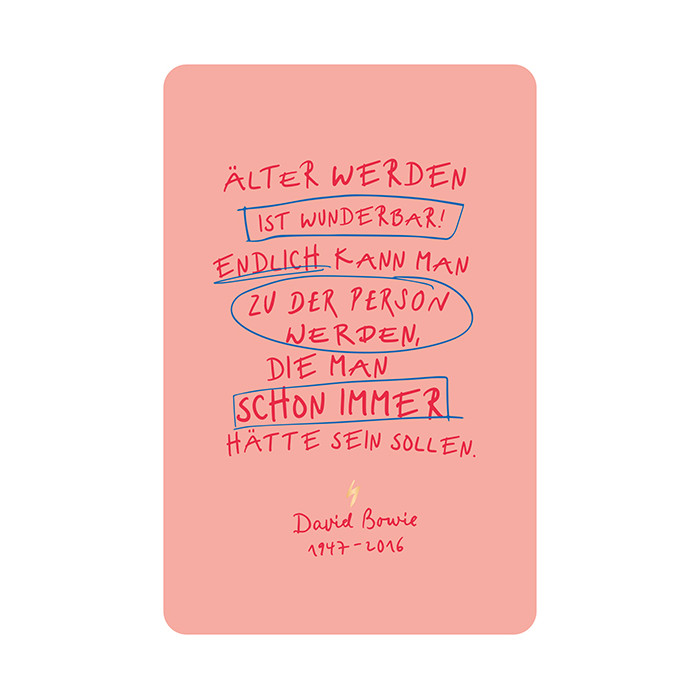 ÄLTER WERDEN
IST WUNDERBAR!
ENDLICH KANN MAN
ZU DER PERSON
WERDEN,
DIE MAN
SCHON IMMER
HÄTTE SEIN SOLLEN.
David Bowie
1947-2016